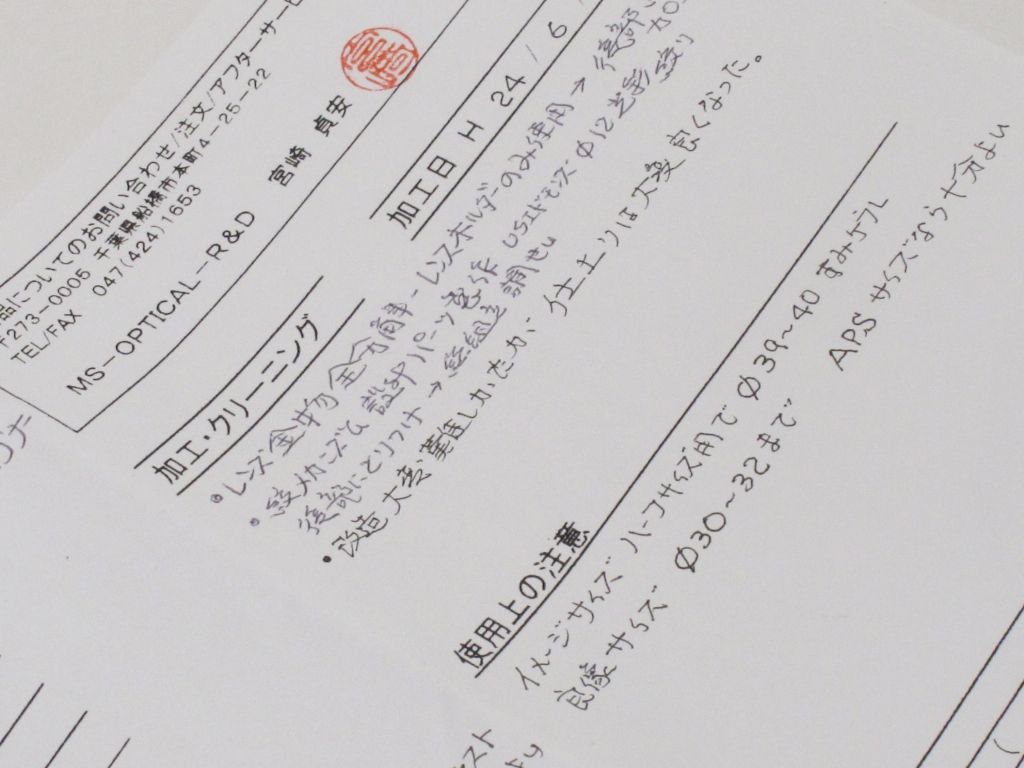 品についてのお問い合わせ/注文/アフターサービ
〒273-0005 千葉県船橋市本町4-25-22
TEL/FAX 047(424)1653
MS-OPTICAL-R&D 宮崎 貞安
加工日 H 24 / 6 /
加工・クリーニング
・レンズ金物全分解 - レンズホルダーのみ使用 → 後部
・絞メカニズム 設計 パーツ製作 USエドモンズ φ12 虹彩絞り
後部にとりつけ → 総組立 調整
・改造大変難しかったが 仕上りは大変良くなった。
使用上の注意
イメージサイズ ハーフサイズ用で φ39~40 すみケラレ
良像サイズ φ30~32まで
APSサイズなら十分よい
スト